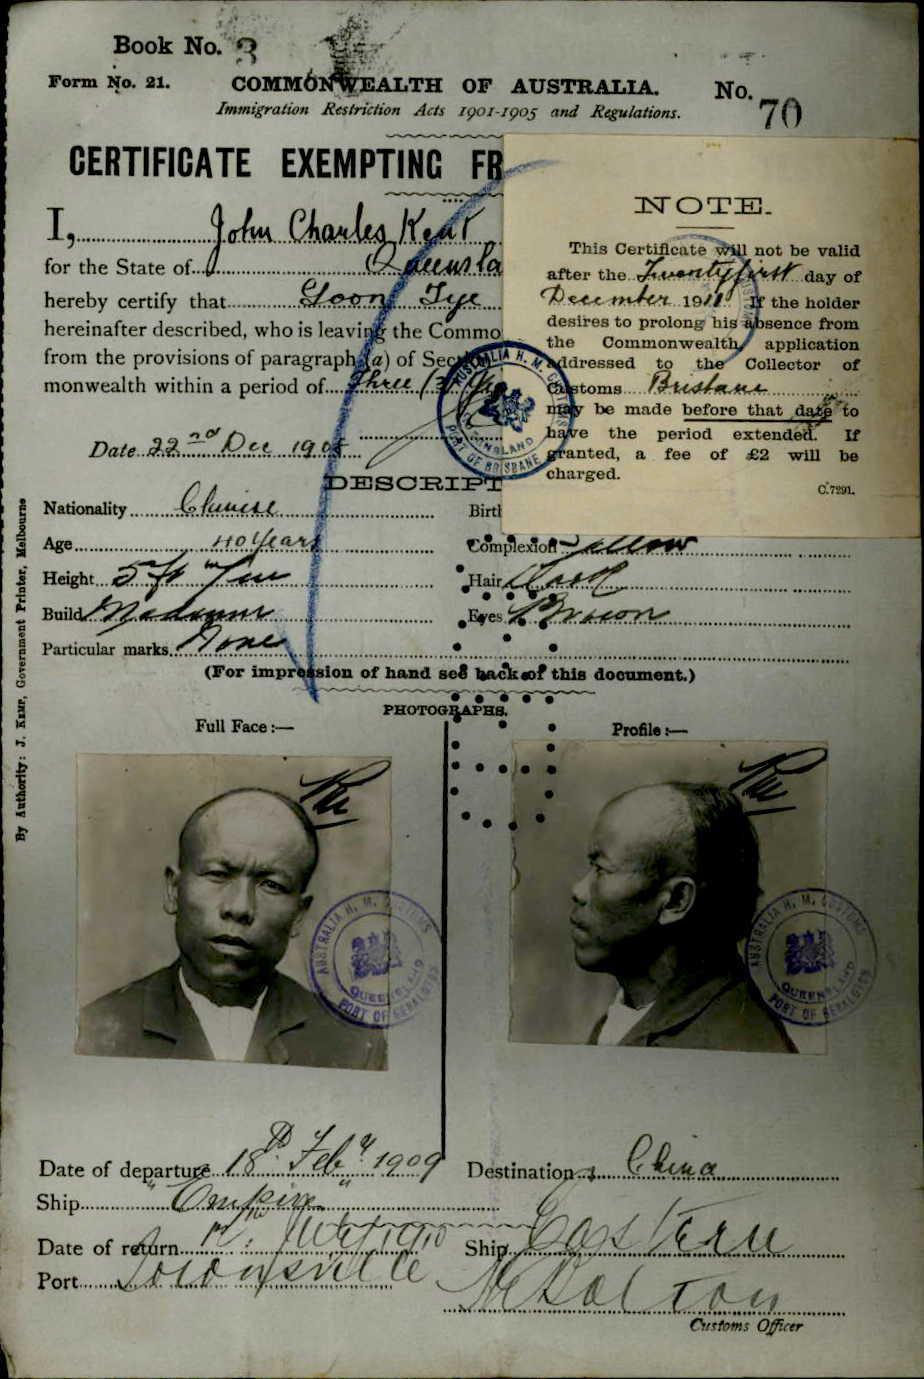 Book No. 3
Form No. 21. COMMONWEALTH OF AUSTRALIA. No. 70
Immigration Restriction Acts 1901-1905 and Regulations.
CERTIFICATE EXEMPTING FR
I, John Charles Kent
for the State of Queensla
hereby certify that Goon Tye
hereinafter described, who is leaving the Commo
from the provisions of paragraph (a) of Sec
monwealth within a period of Three (3)
Date 22nd Dec 1908
NOTE.
This Certificate will not be valid
after the Twenty first day of
December 1911 If the holder
desires to prolong his absence from
the Commonwealth, application
addressed to the Collector of
Customs Brisbane
may be made before that date to
have the period extended. If
granted, a fee of £2 will be
charged.
C.7291.
AUSTRALIA H. M. CUSTOMS
QUEENSLAND
PORT OF BRISBANE
DESCRIPT
Nationality Chinese Birt
Age 40 Years Complexion Yellow
Height 5 ft Hair Dark
Build Medium Eyes Brown
Particular marks None
(For impression of hand see back of this document.)
PHOTOGRAPHS.
Full Face:— Profile:—
AUSTRALIA H. M. CUSTOMS
QUEENSLAND
PORT OF GERALDTON
AUSTRALIA H. M. CUSTOMS
QUEENSLAND
PORT OF GERALDTON
Date of departure 18th Feby 1909 Destination China
Ship "Empire"
Date of return 1910 Ship Eastern
Port Townsville
Customs Officer
By Authority: J. Kemp, Government Printer, Melbourne